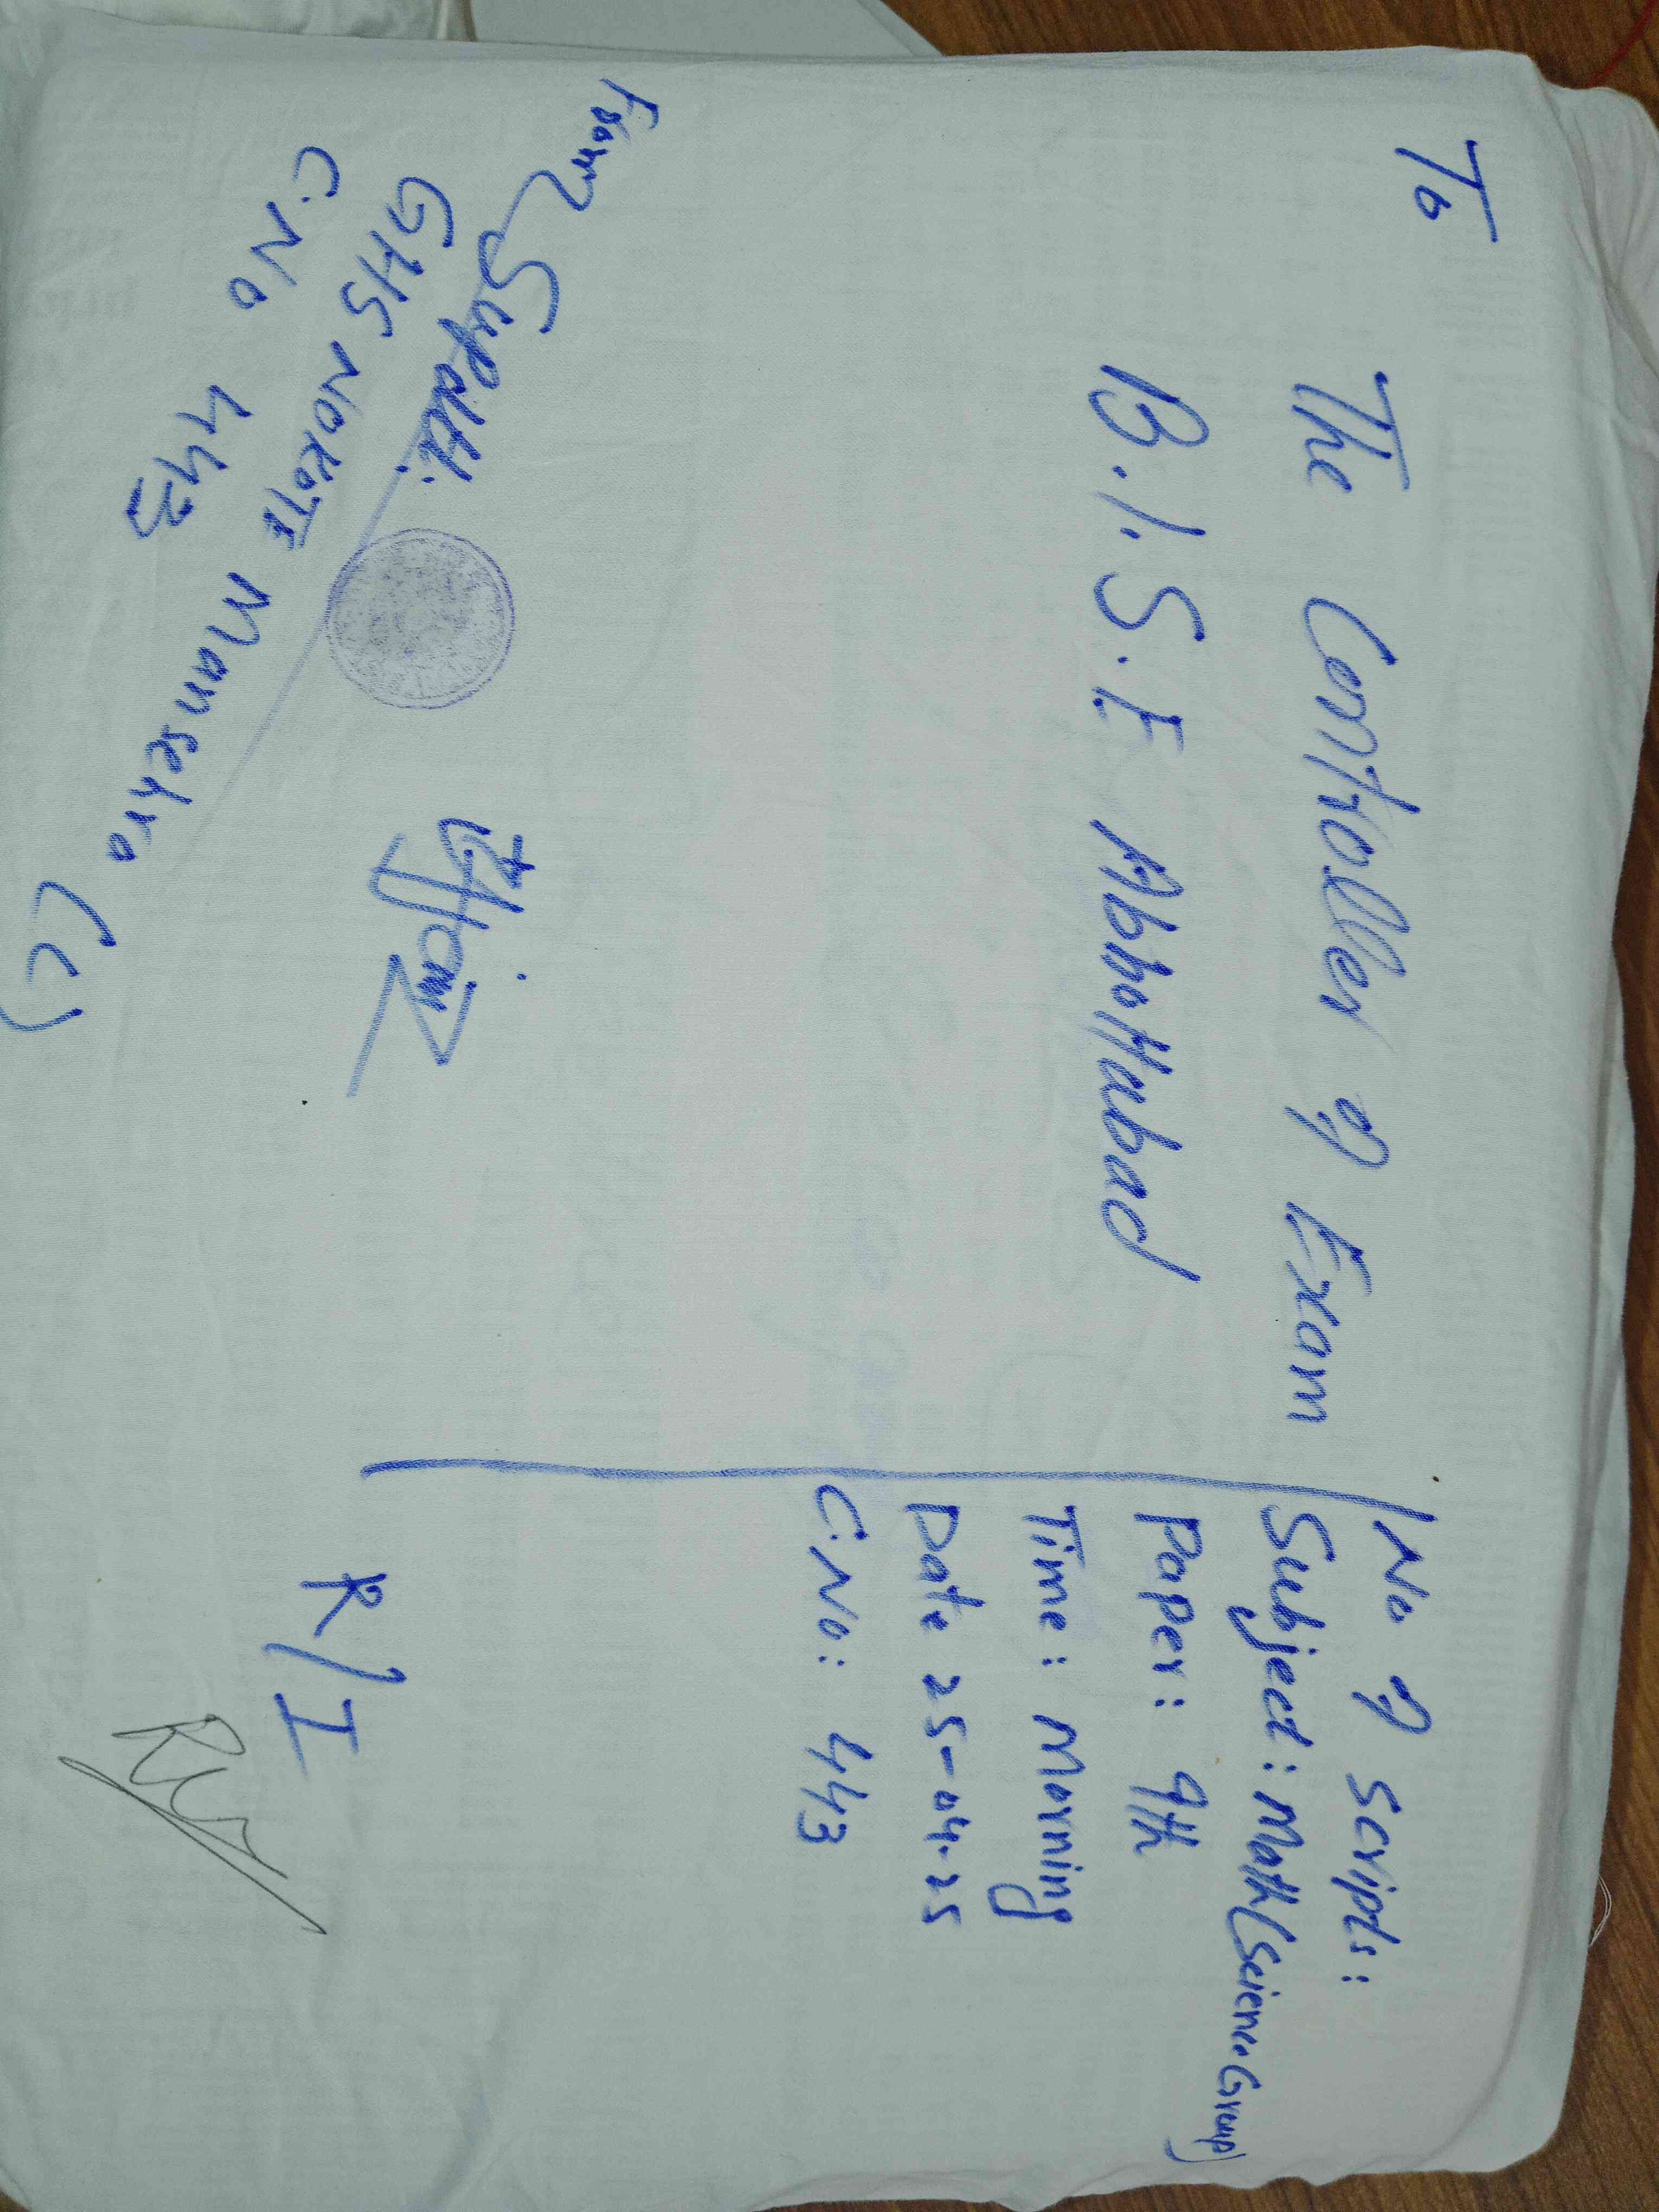 To
The Controller of Exam
B.I.S.E Abbottabad
No of scripts:
Subject: Math (Science Group)
Paper: 9th
Time: Morning
Date 25-04-25
C.No: 443
From
Supdtt:
GHS NOKOTE Mansehra
C.No 443
R/I